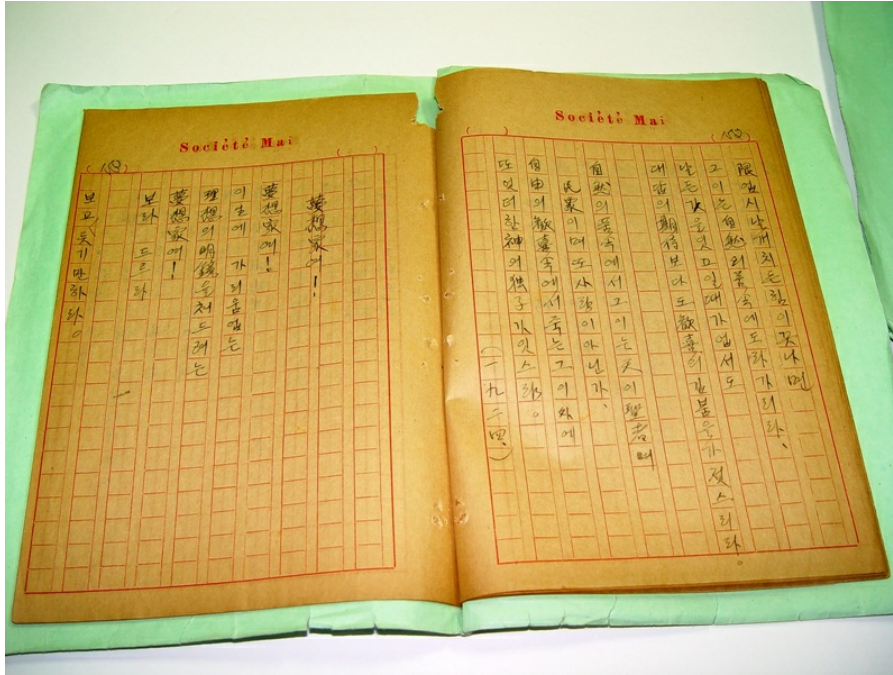 Société Mai
限업시날개치든힘이끗나면
그이는自然의품속에도라가리라、
날든 것을잇고일때가업서도
대답의期待보다도歡喜의깁붐을가젓스리라。
自然의품속에서그이는天이聖者며
民衆이며또사랑이아닌가、
自由의歡喜속에서죽는그의外에
또잇더한神의独子가잇스랴。
(一九二四、)
Société Mai
夢想家여!
夢想家여!
이길에 가리움업는
理想의明鏡을처드려는
夢想家여!
보라 드르라
보고、듯기만하라。